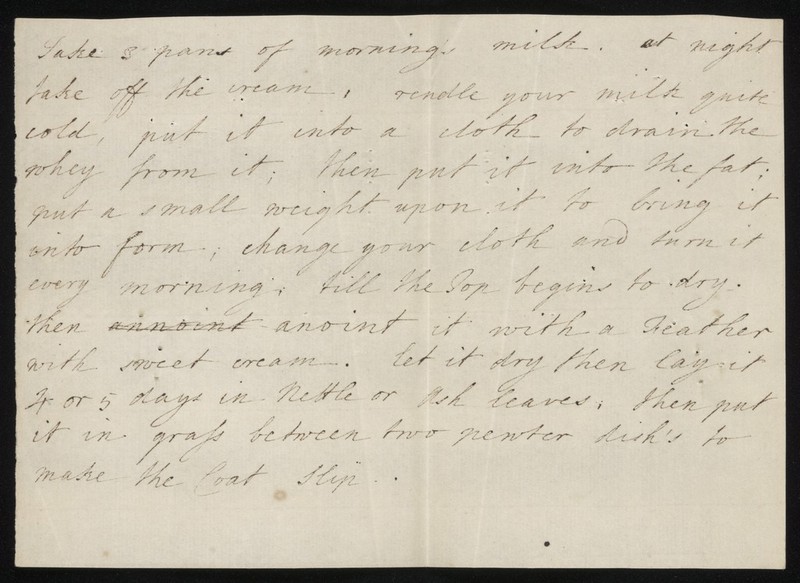 Take 3 pans of morning's milk. at night
take off the cream, rendle your milk quite
cold, put it into a cloth to drain the
whey from it; then put it into the fat;
put a small weight upon it to bring it
into form; change your cloth and turn it
every morning; till the Top begins to dry.
then annoint anoint it with a Feather
with sweet cream. let it dry then lay it
4 or 5 days in Nettle or Ash leaves; then put
it in grass between two pewter dish's to
make the Coat slip.